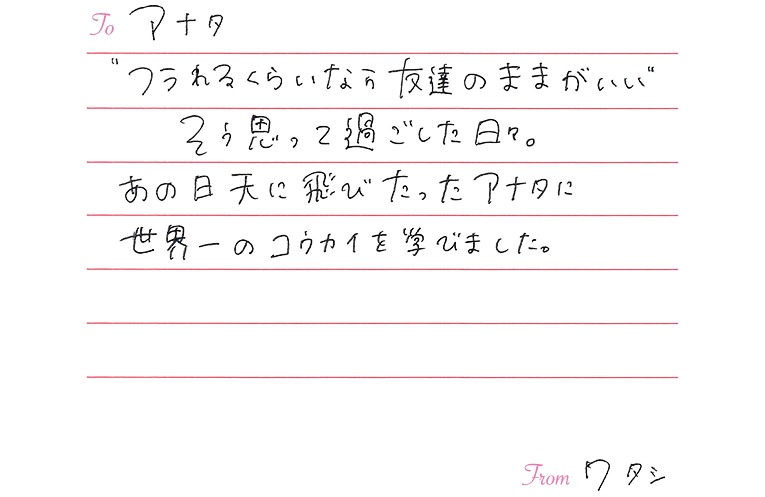 To アナタ
"フラれるくらいなら友達のままがいい"
そう思って過ごした日々。
あの日天に飛びたったアナタに
世界一のコウカイを学びました。
From ワタシ